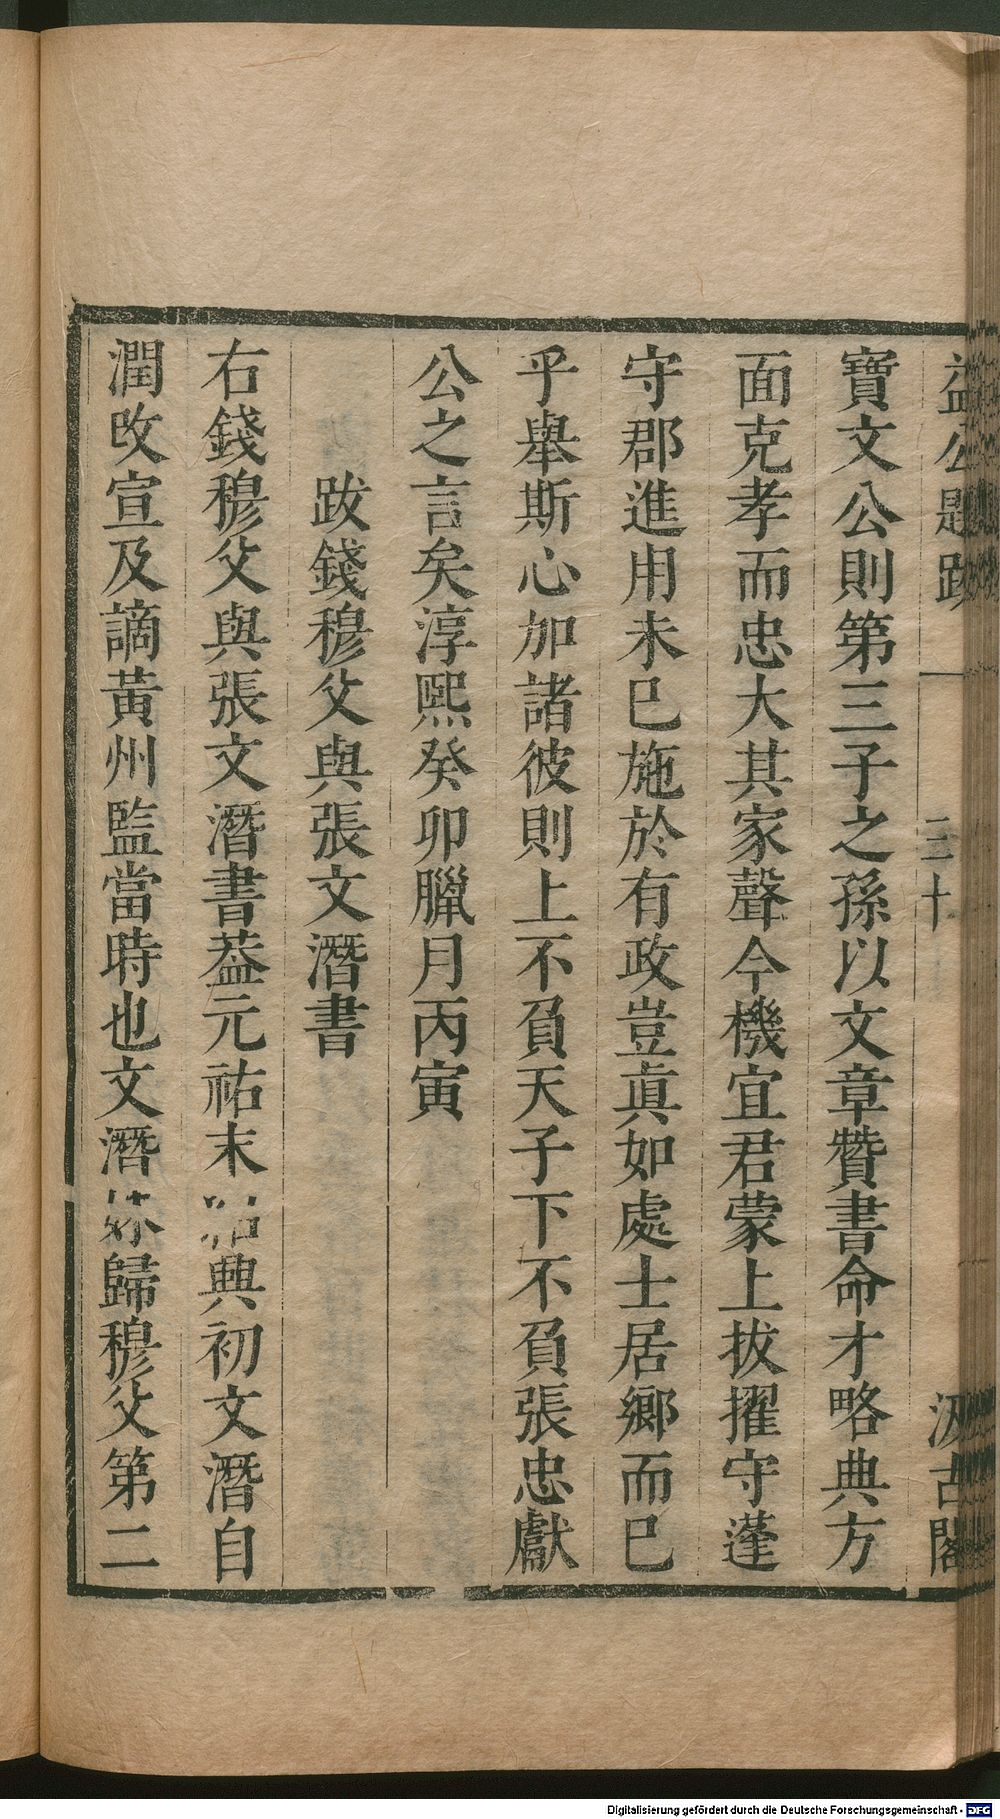 益公題跋 三十 汲古閣
寶文公則第三子之孫以文章贊書命才略典方
面克孝而忠大其家聲今機宜君蒙上拔擢守蓬
守郡進用未巳施於有政豈眞如處士居鄉而巳
乎舉斯心加諸彼則上不負天子下不負張忠獻
公之言矣淳熙癸卯臘月丙寅
跋錢穆父與張文潛書
右錢穆父與張文潛書葢元祐末紹興初文潛自
潤改宣及謫黃州監當時也文潛妹歸穆父第二
Digitalisierung gefördert durch die Deutsche Forschungsgemeinschaft - DFG